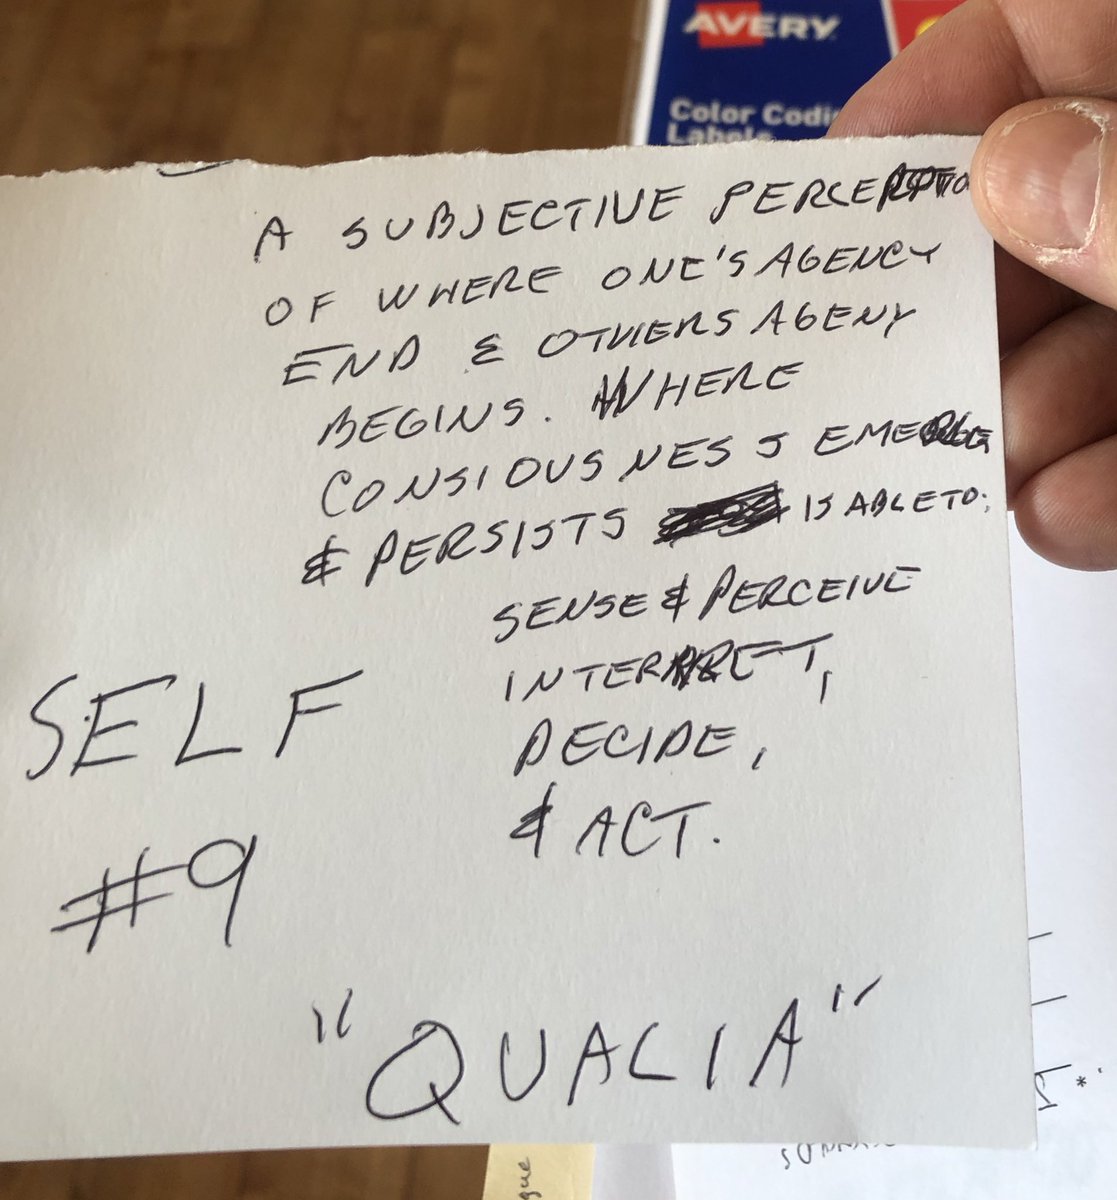 AVERY
Color Coding
Labels
A SUBJECTIVE PERCEPTIO
OF WHERE ONE'S AGENCY
END & OTHERS AGENY
BEGINS. WHERE
CONSIOUSNESS EMERGE
& PERSISTS IS ABLE TO:
SENSE & PERCEIVE
INTERPRET,
DECIDE,
& ACT.
SELF
#9
"QUALIA"
gue